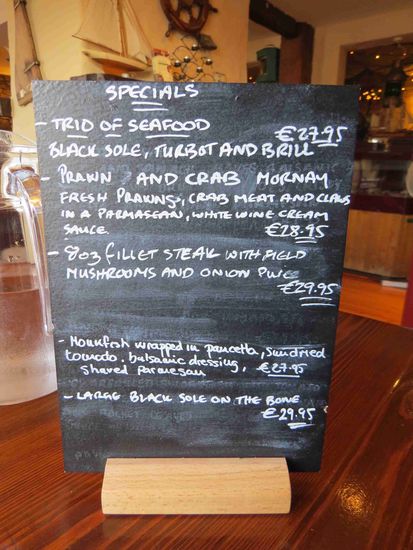 SPECIALS
- TRIO OF SEAFOOD €27.95
BLACK SOLE, TURBOT AND BRILL
- PRAWN AND CRAB MORNAY
FRESH PRAWNS, CRAB MEAT AND CLAWS
IN A PARMASEAN, WHITE WINE CREAM
SAUCE. €28.95
- 8oz fillet STEAK WITH FIELD
MUSHROOMS AND ONION
€29.95
- Monkfish wrapped in pancetta, sundried
tomato. balsamic dressing,
shaved Parmesan €27.95
- LARGE BLACK SOLE ON THE BONE
€29.95